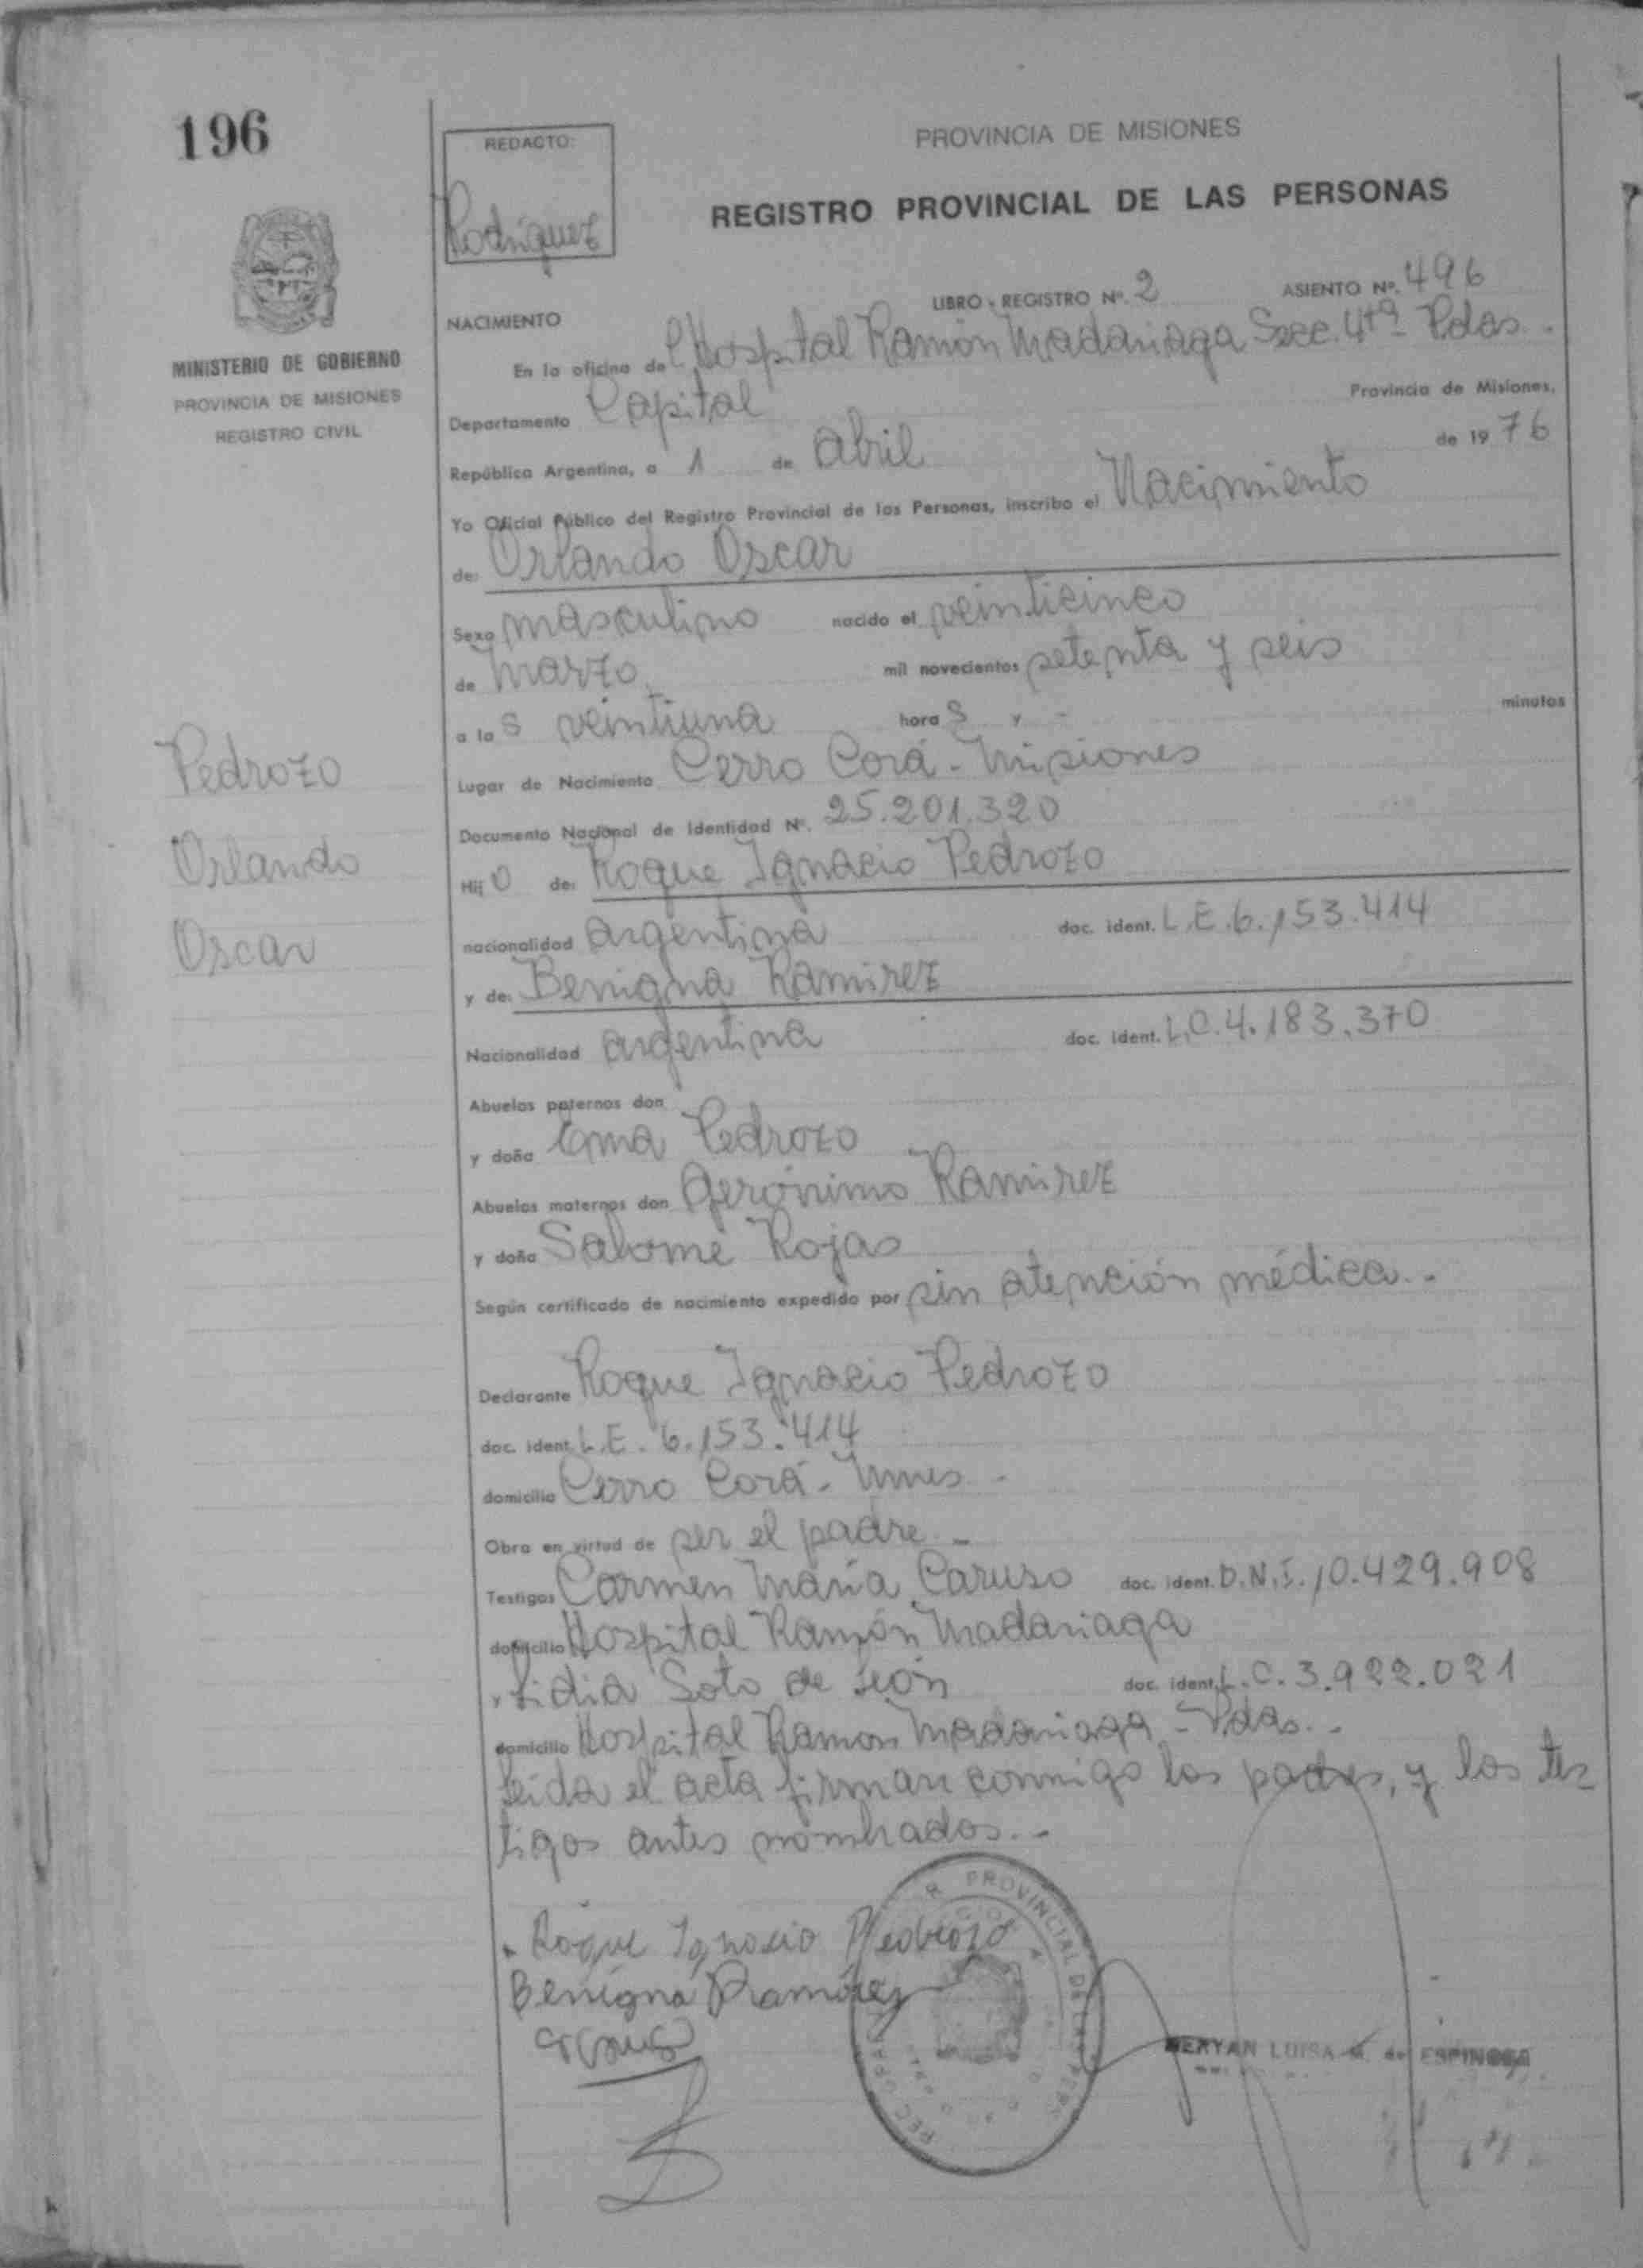 196
REDACTO:
Rodriguez
PROVINCIA DE MISIONES
REGISTRO PROVINCIAL DE LAS PERSONAS
MINISTERIO DE GOBIERNO
PROVINCIA DE MISIONES
REGISTRO CIVIL
LIBRO - REGISTRO Nº. 2 ASIENTO Nº. 496
NACIMIENTO
En la oficina del Hospital Ramón Madariaga Secc. 4tª - Pdas. -
Departamento Capital Provincia de Misiones,
República Argentina, a 1 de Abril de 1976
Yo Oficial Público del Registro Provincial de las Personas, inscribo el Nacimiento
de: Orlando Oscar
Sexo masculino nacido el veinticinco
de Marzo mil novecientos setenta y seis
a las veintiuna horas y - minutos
Lugar de Nacimiento Cerro Corá - Misiones
Documento Nacional de Identidad Nº. 25.201.320
Hijo de: Roque Ignacio Pedrozo
nacionalidad argentina doc. ident. L.E. 6.153.414
y de: Benigna Ramirez
Nacionalidad argentina doc. ident. L.C. 4.183.370
Abuelos paternos don
y doña Ema Pedrozo
Abuelos maternos don Gerónimo Ramirez
y doña Salomé Rojas
Según certificado de nacimiento expedido por sin atención médica. -
Declarante Roque Ignacio Pedrozo
doc. ident. L.E. 6.153.414
domicilio Cerro Corá - Mnes -
Obra en virtud de ser el padre -
Testigos Carmen María Caruso doc. ident. D.N.I. 10.429.908
domicilio Hospital Ramón Madariaga
y Lidia Soto de León doc. ident. L.C. 3.922.021
domicilio Hospital Ramon Madariaga - Pdas. -
Leida el acta firman conmigo los padres, y los tes
tigos antes nombrados. -
Pedrozo
Orlando
Oscar
Roque Ignacio Pedrozo
Benigna Ramírez
PROVINCIAL DE LAS PERS
LUISA M. de ESPINOSA